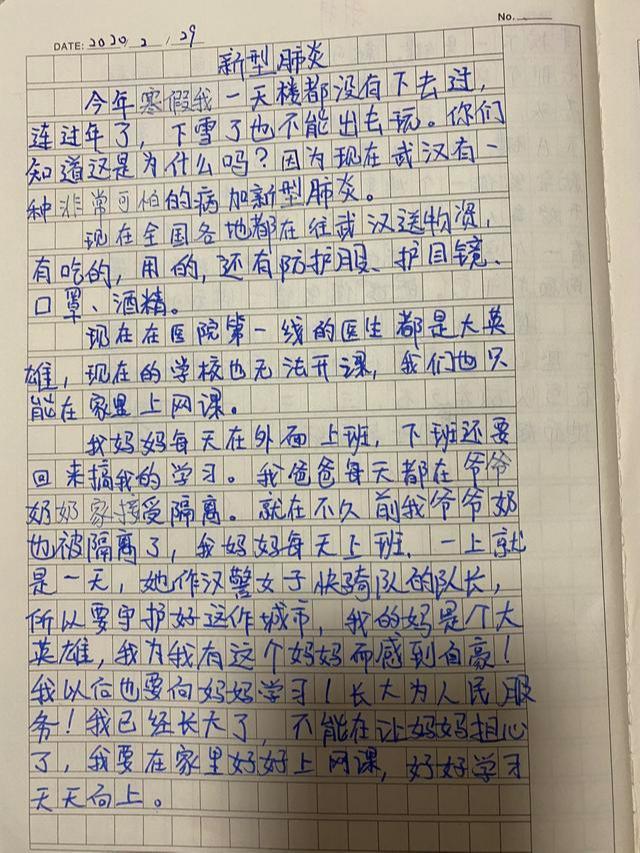 No.
DATE: 2020 2 / 29
新型肺炎
今年寒假我一天楼都没有下去过,
连过年了,下雪了也不能出去玩。你们
知道这是为什么吗?因为现在武汉有一
种非常可怕的病加新型肺炎。
现在全国各地都在往武汉送物资,
有吃的,用的,还有防护服、护目镜、
口罩、酒精。
现在在医院第一线的医生都是大英
雄,现在的学校也无法开课,我们也只
能在家里上网课。
我妈妈每天在外面上班,下班还要
回来搞我的学习。我爸爸每天都在爷爷
奶奶家接受隔离。就在不久前我爷爷奶
也被隔离了,我妈妈每天上班,一上就
是一天,她作汉警女子快骑队的队长,
所以要守护好这作城市,我的妈是个大
英雄,我为我有这个妈妈而感到自豪!
我以后也要向妈妈学习!长大为人民服
务!我已经长大了,不能在让妈妈担心
了,我要在家里好好上网课,好好学习
天天向上。